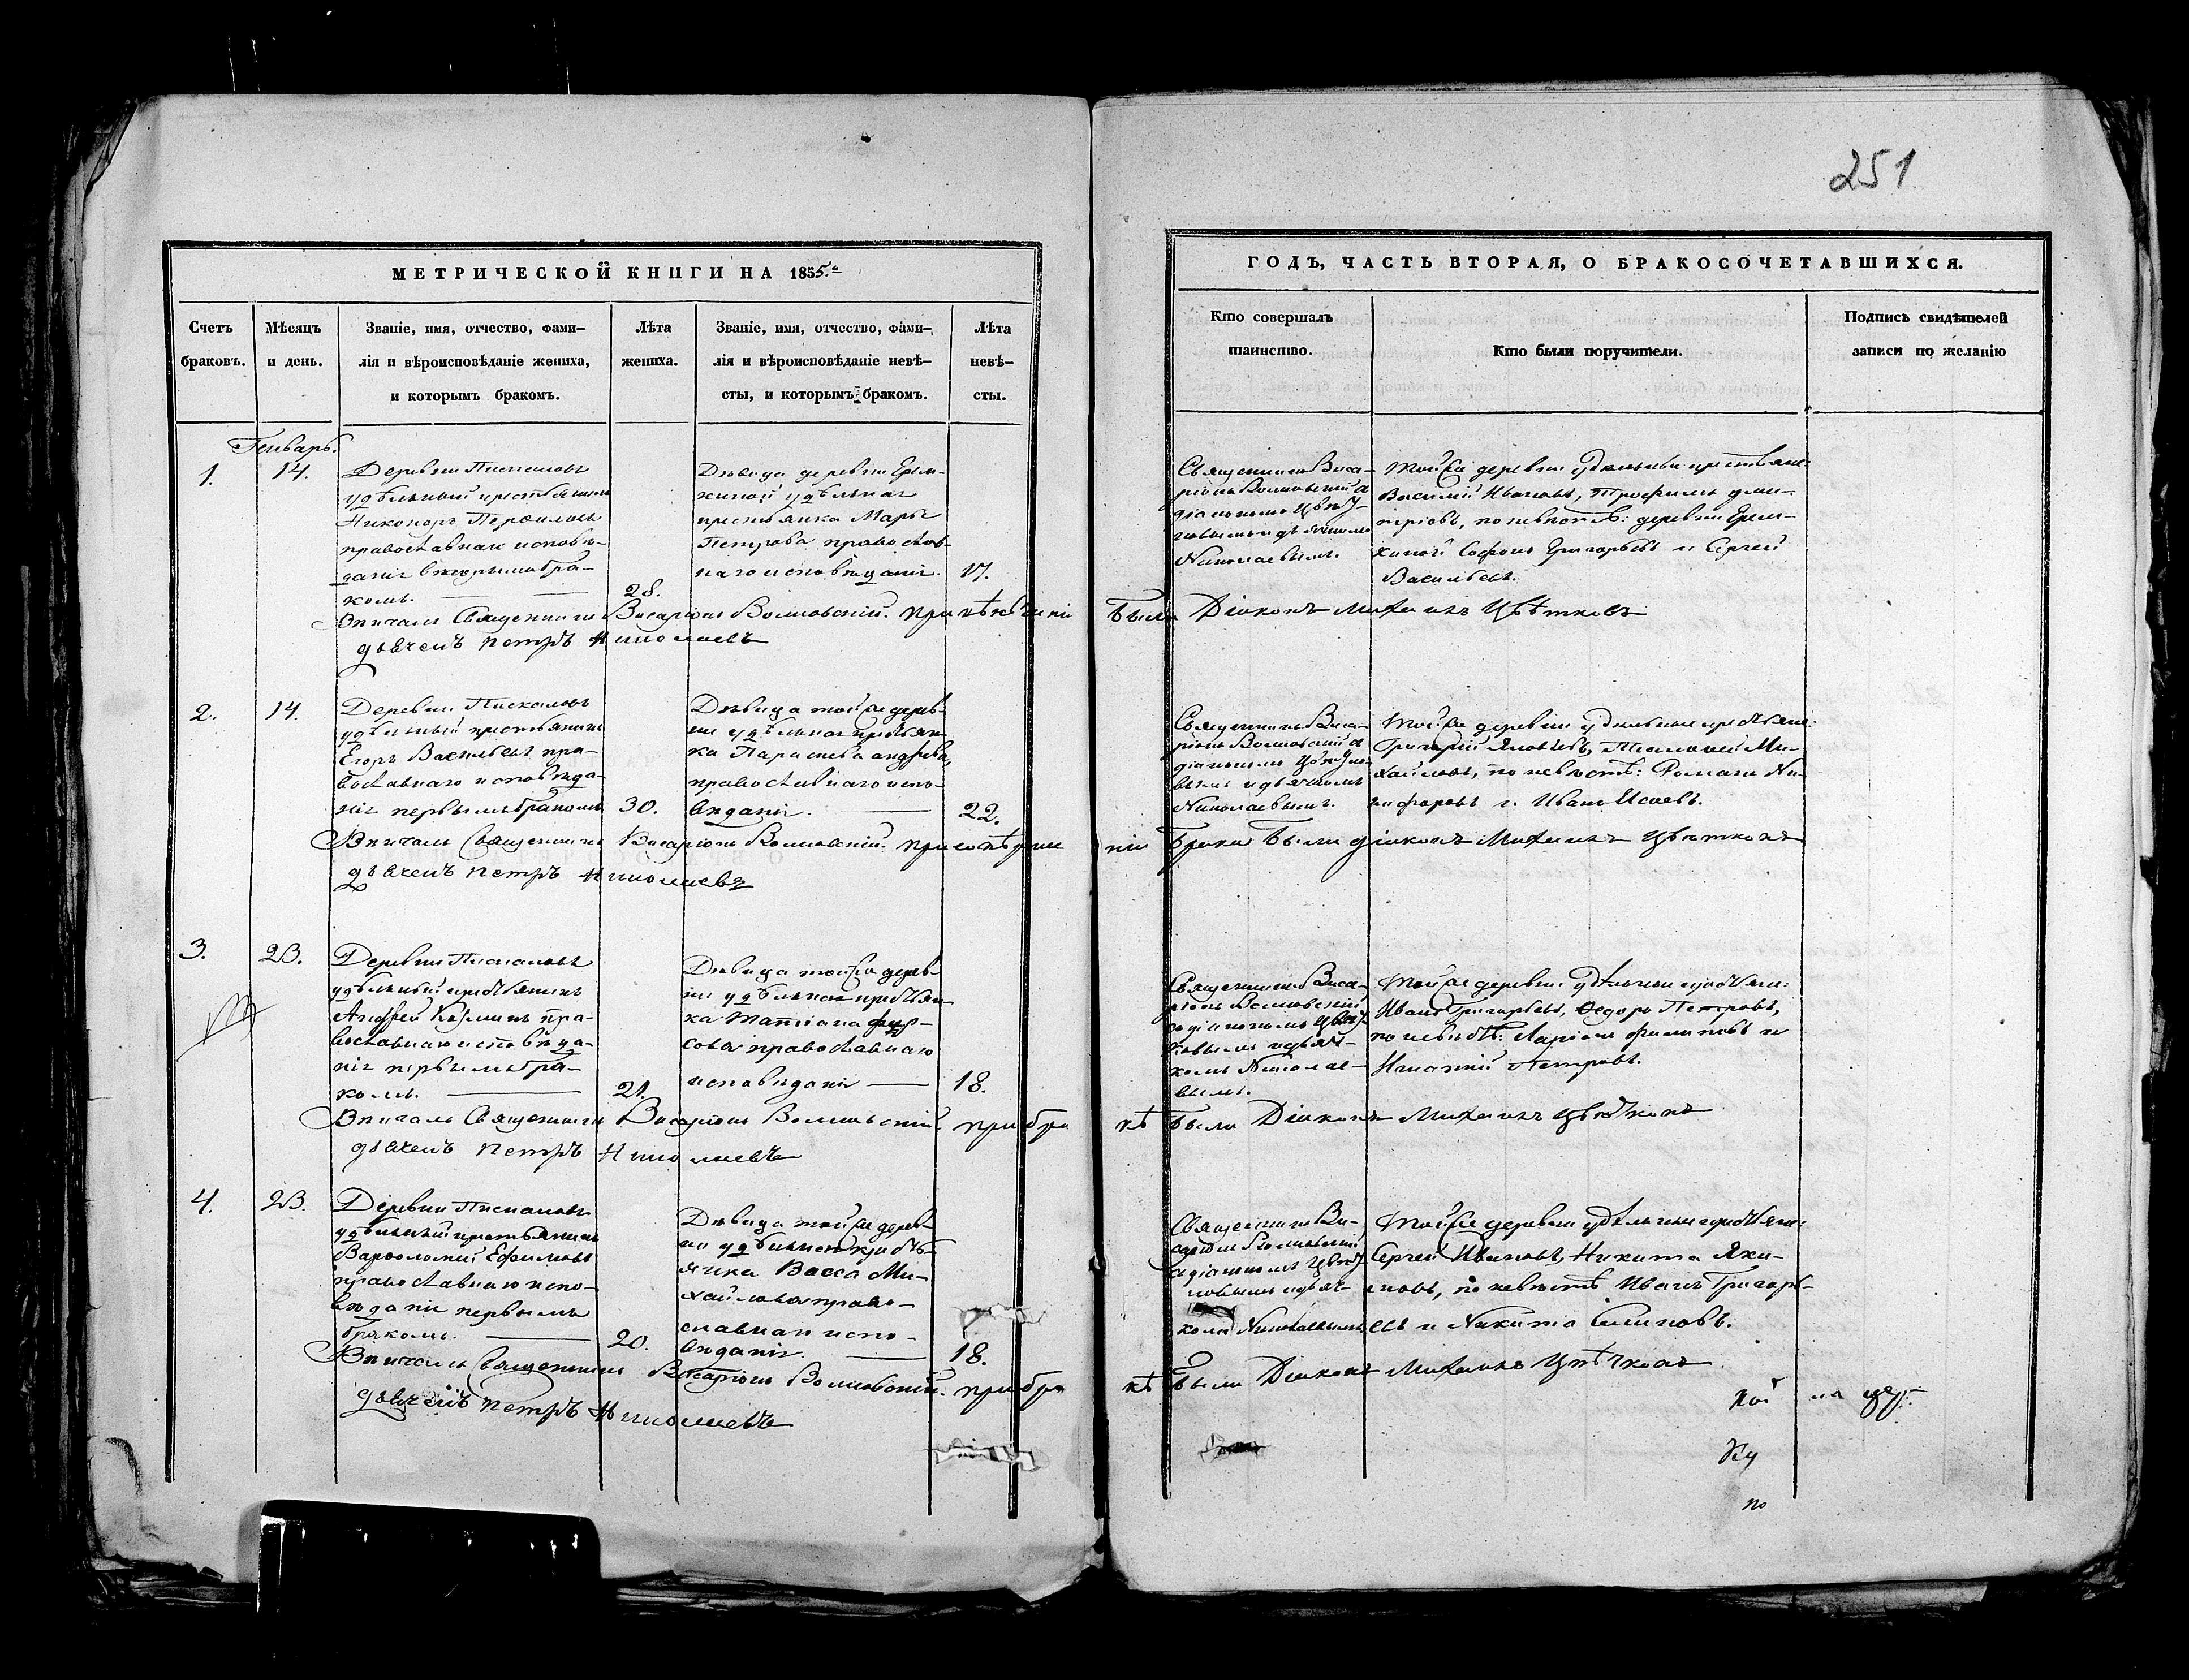 251
МЕТРИЧЕСКОЙ КНИГИ НА 1855.
Счетъ
браковъ.
Мѣсяцъ
и день.
Званіе, имя, отчество, фами-
лія и вѣроисповѣданіе жениха,
и которымъ бракомъ.
Лѣта
жениха.
Званіе, имя, отчество, фами-
лія и вѣроисповѣданіе невѣ-
сты, и которымъ бракомъ.
Лѣта
невѣ-
сты.
ГОДЪ, ЧАСТЬ ВТОРАЯ, О БРАКОСОЧЕТАВШИХСЯ.
Кто совершалъ
таинство.
Кто были поручители.
Подпись свидѣтелей
записи по желанію
Генварь.
1.
14.
Деревни
удѣльный крестьянинъ
Никоноръ
православнаго исповѣ-
данія вторымъ бра-
комъ.
28.
Дѣвица деревни Ерем-
киной удѣльная
крестьянка Марья
Петрова православ-
наго исповѣданія.
17.
Священникъ Виса-
ріонъ съ
діакономъ Цвѣт-
ковымъ и дьячкомъ
Николаевымъ.
Той же деревни удѣльные крестьяне
Василій Ивановъ, Трофимъ Дми-
тріевъ, по невѣстѣ: деревни Ерем-
киной Софонъ Григорьевъ и Сергей
Васильевъ.
Вѣнчалъ Священникъ Висаріонъ при вѣнчаніи были Діаконъ Михаилъ Цвѣтковъ
дьячекъ Петръ Николаевъ
2.
14.
Деревни
удѣльный крестьянинъ
Егоръ Васильевъ пра-
вославнаго исповѣда-
нія первымъ бракомъ
30.
Дѣвица той же дерев-
ни удѣльная крестьян-
ка Параскева Андреева,
православнаго испо-
вѣданія.
22.
Священникъ Виса-
ріонъ съ
діакономъ Цвѣтко-
вымъ и дьячкомъ
Николаевымъ.
Той же деревни удѣльные крестьяне
Григорій Яковлевъ, Ми-
хайловъ, по невѣстѣ: Романъ Ни-
кифоровъ и Иванъ Исаевъ.
Вѣнчалъ Священникъ Висаріонъ при
брака были діаконъ Михаилъ Цвѣтковъ
дьячекъ Петръ Николаевъ
3.
23.
Деревни
удѣльный крестьянинъ
Андрей Козминъ пра-
вославнаго исповѣда-
нія первымъ бра-
комъ.
21.
Дѣвица той же дерев-
ни удѣльная крестьян-
ка Татіана Фир-
сова православнаго
исповѣданія
18.
Священникъ Виса-
ріонъ
съ діакономъ Цвѣт-
ковымъ и дьяч-
комъ Николае-
вымъ.
Той же деревни удѣльные крестьяне:
Иванъ Григорьевъ, Ѳедоръ Петровъ,
по невѣстѣ: Ларіонъ Филиповъ и
Игнатій Петровъ.
Вѣнчалъ Священникъ Висаріонъ при бракѣ были Діаконъ Михаилъ Цвѣтковъ
дьячекъ Петръ Николаевъ
4.
23.
Деревни
удѣльный крестьянинъ
Варѳоломей Ефимовъ
православнаго испо-
вѣданія первымъ
бракомъ.
20.
Дѣвица той же дерев-
ни удѣльная кресть-
янка Васса Ми-
хайлова право-
славнаго испо-
вѣданія.
18.
Священникъ Ви-
саріонъ
съ діакономъ Цвѣт-
ковымъ и дьяч-
комъ Николаевымъ
Той же деревни удѣльные крестьяне
Сергей Ивановъ, Никита Яки-
мовъ, по невѣстѣ Иванъ Григорь-
евъ и Никита
Вѣнчалъ Священникъ Висаріонъ при бракѣ были Діаконъ Михаилъ Цвѣтковъ
дьячекъ Петръ Николаевъ
на
Ку
по